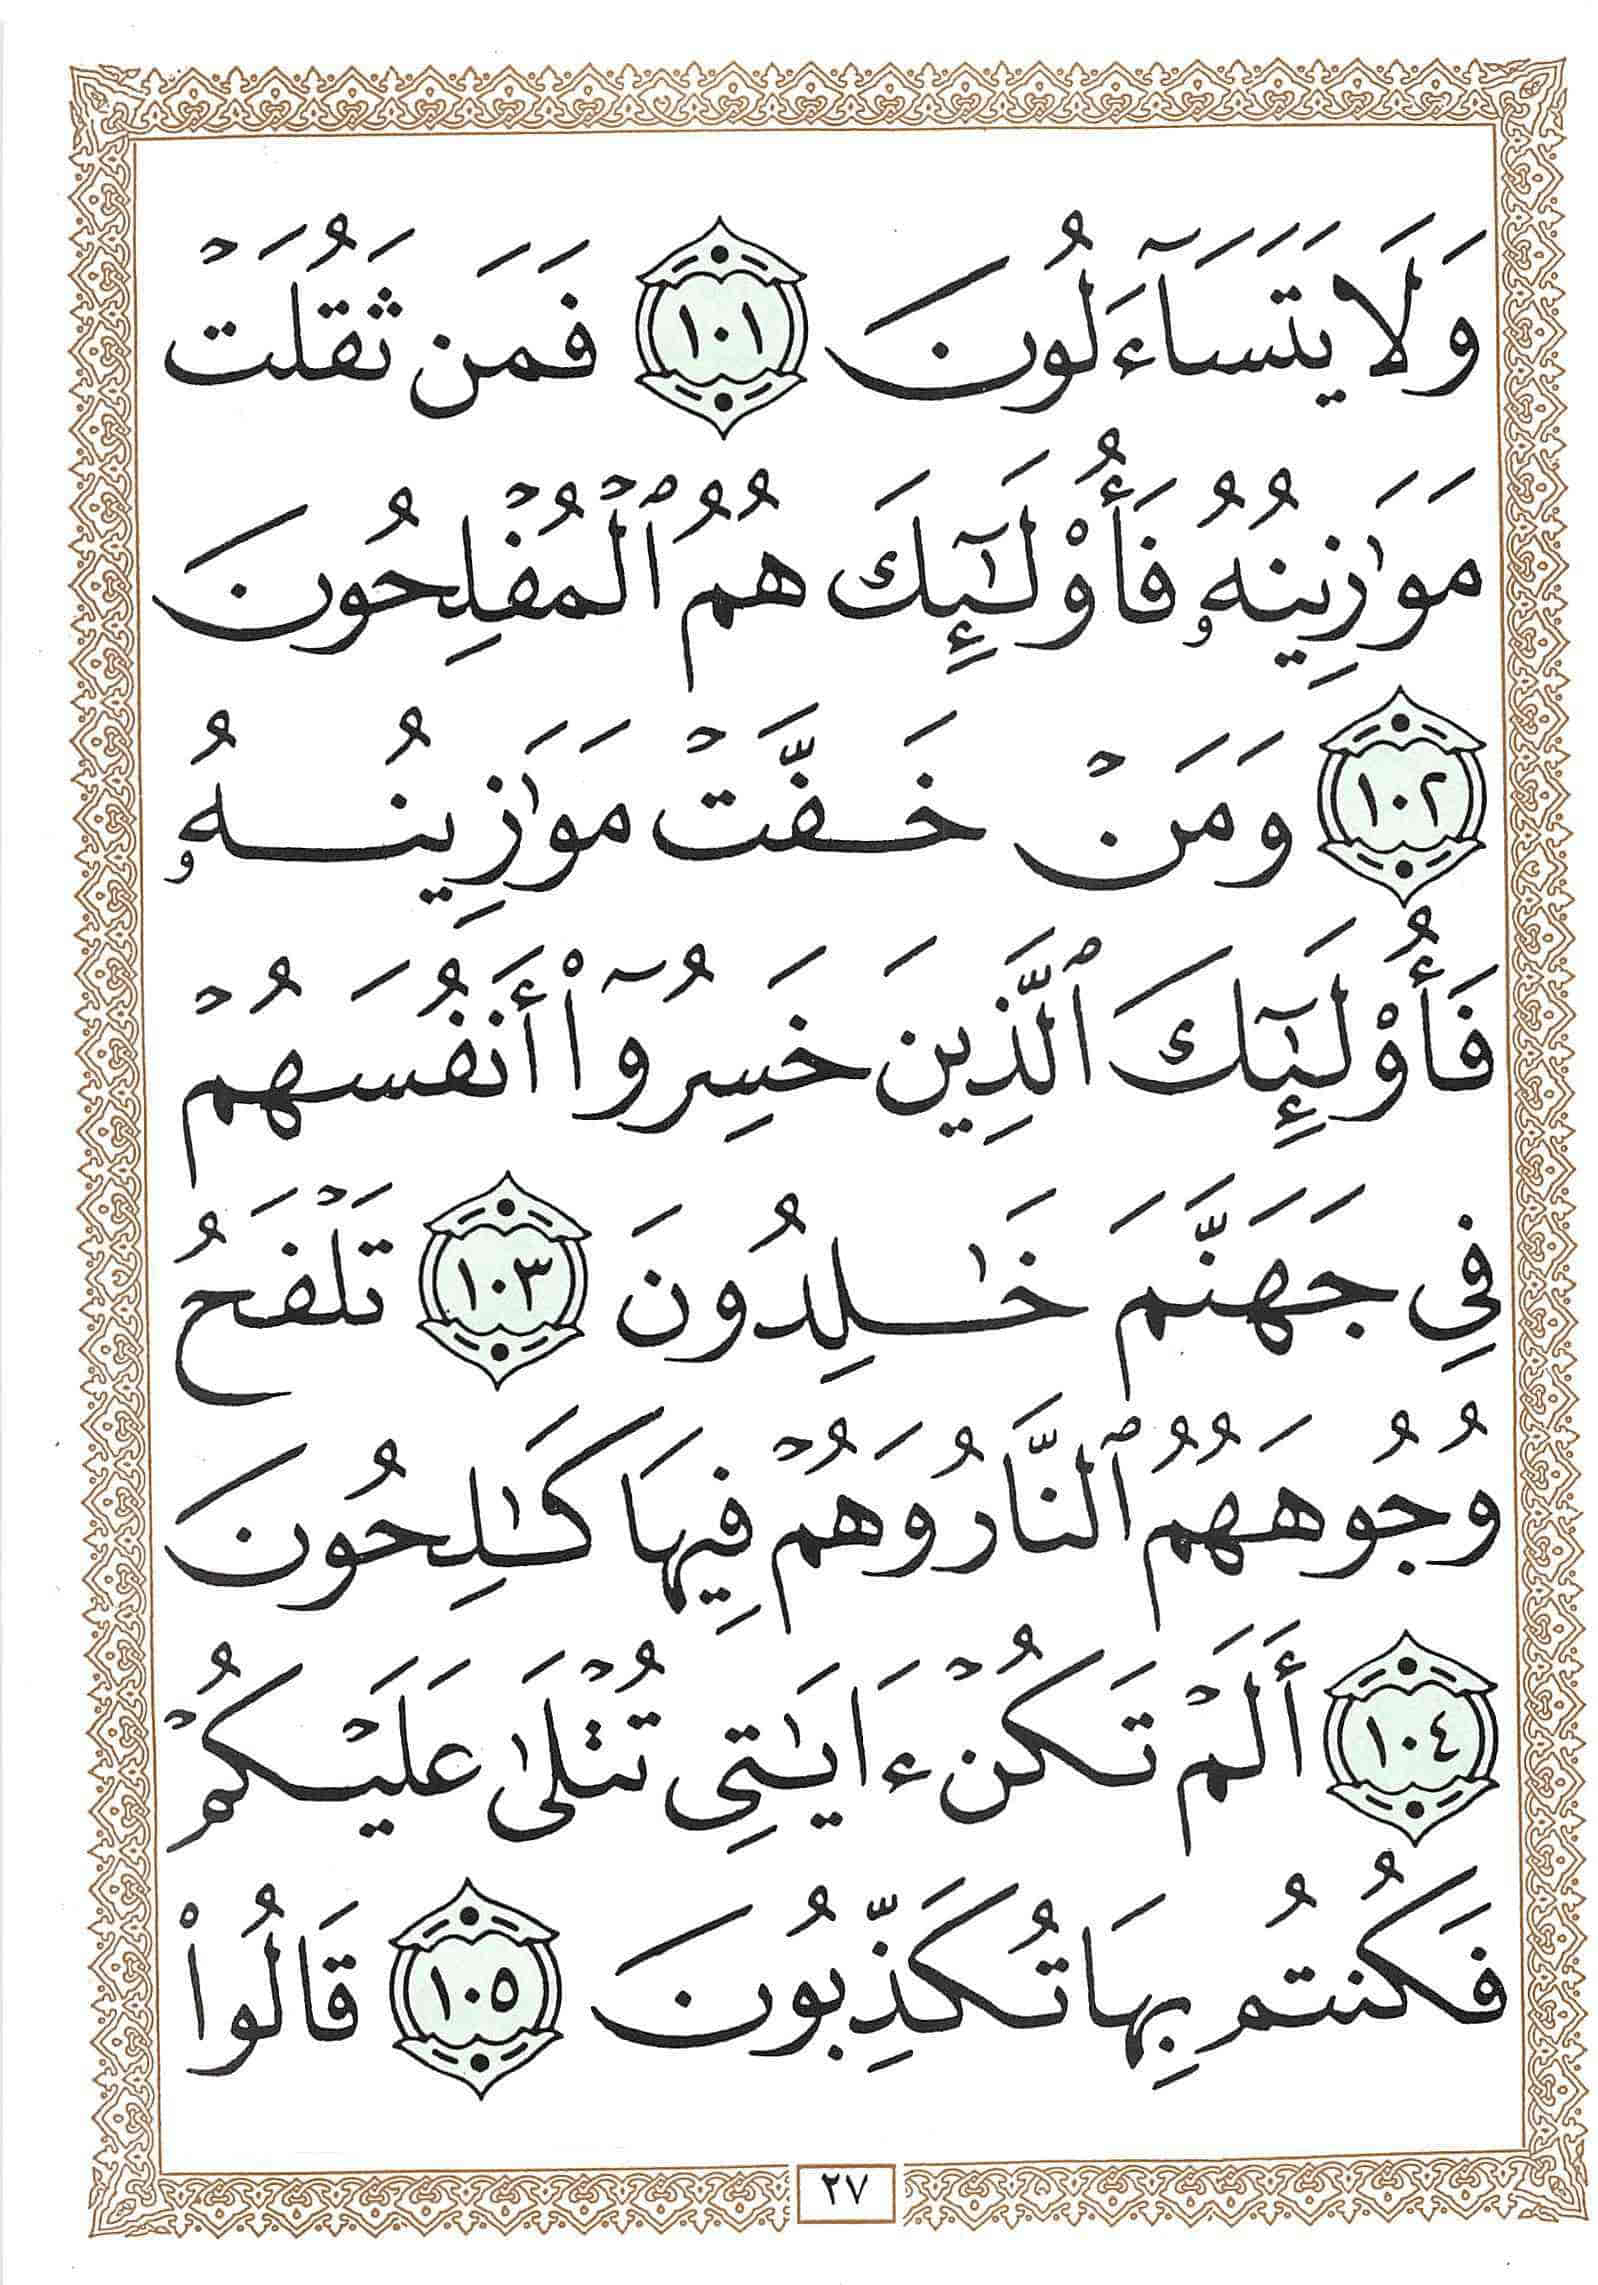 وَلَا يَتَسَآءَلُونَ ١٠١ فَمَن ثَقُلَتْ
مَوَٰزِينُهُۥ فَأُو۟لَـٰٓئِكَ هُمُ ٱلْمُفْلِحُونَ
١٠٢ وَمَنْ خَفَّتْ مَوَٰزِينُهُۥ
فَأُو۟لَـٰٓئِكَ ٱلَّذِينَ خَسِرُوٓا۟ أَنفُسَهُمْ
فِي جَهَنَّمَ خَـٰلِدُونَ ١٠٣ تَلْفَحُ
وُجُوهَهُمُ ٱلنَّارُ وَهُمْ فِيهَا كَـٰلِحُونَ
١٠٤ أَلَمْ تَكُنْ ءَايَـٰتِى تُتْلَىٰ عَلَيْكُمْ
فَكُنتُم بِهَا تُكَذِّبُونَ ١٠٥ قَالُوا۟
٢٧